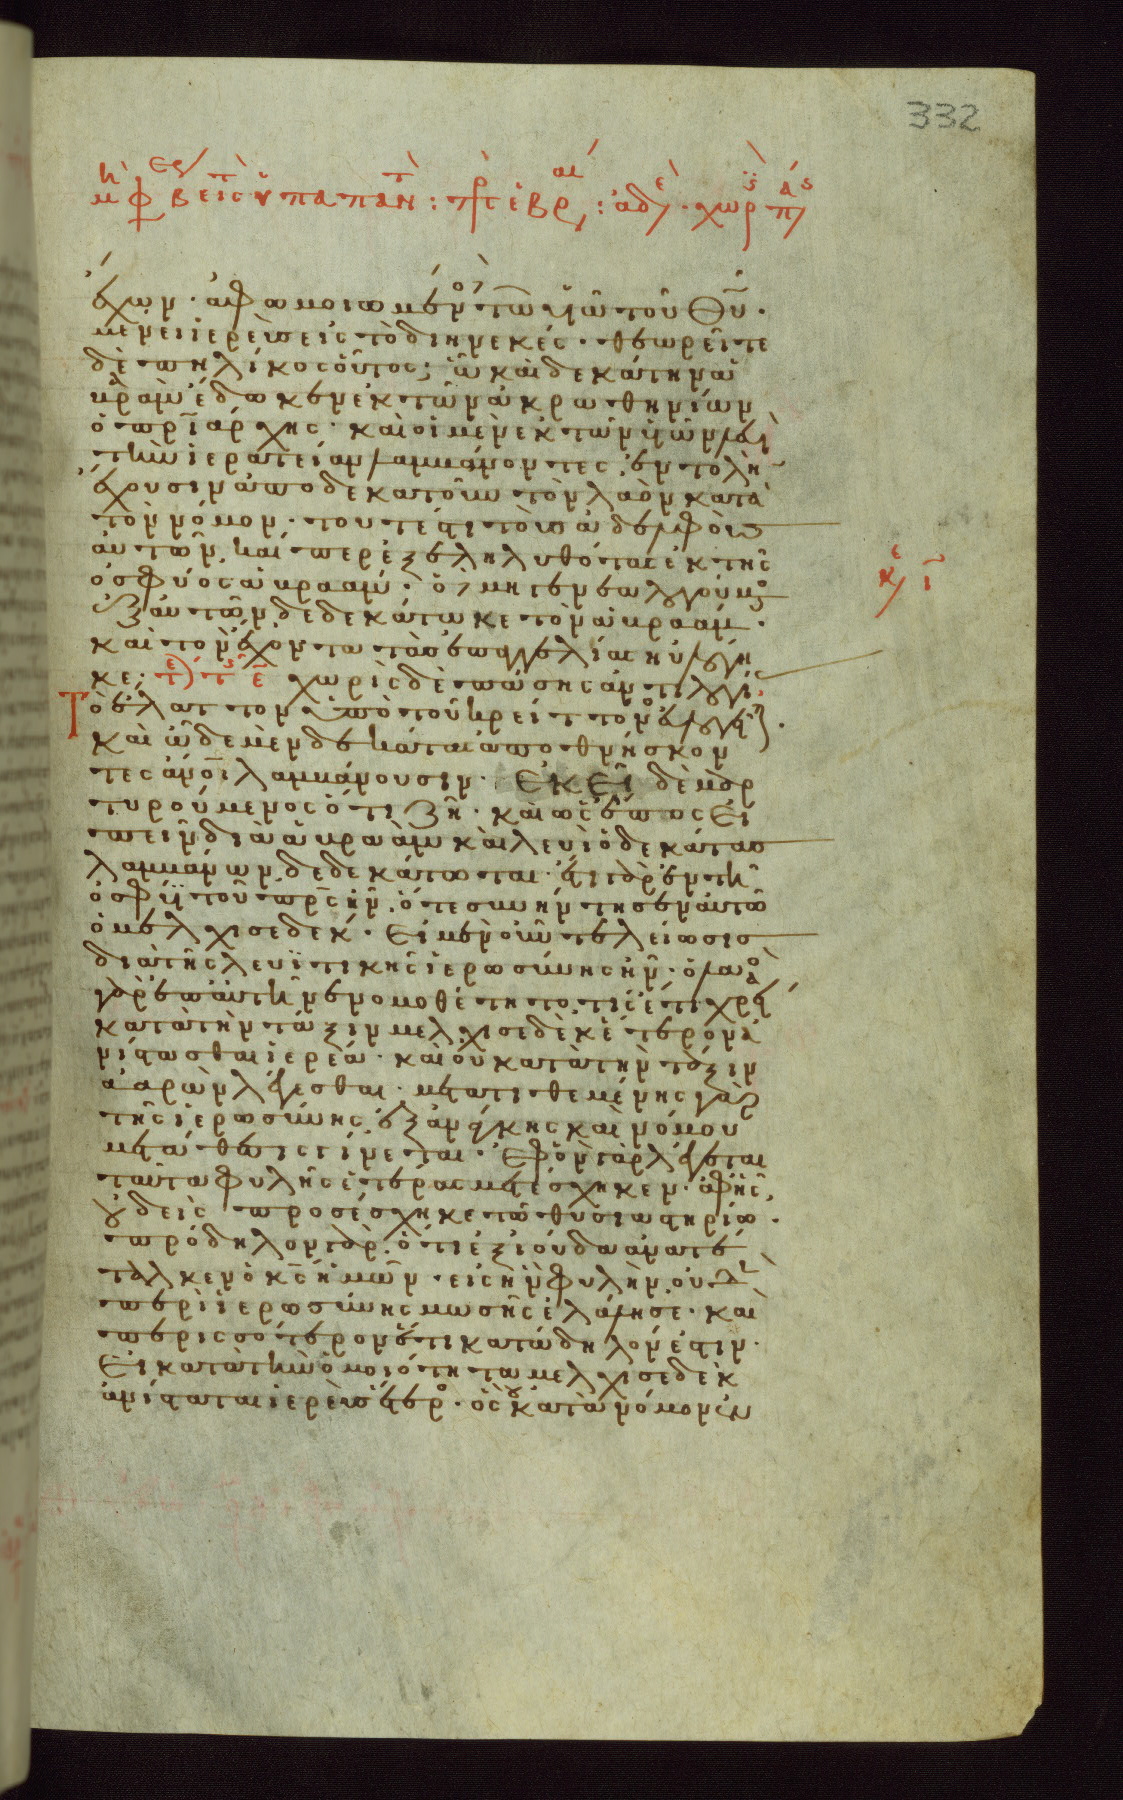 332
μη φεβ β εις τ υπαπαντ : προς εβραι : αδε · χωρις πας
ἔχων · ἀφωμοιωμένος τῶ υἱῶ τοῦ θυ ·
μένει ἱερεὺς εἰς τὸ διηνεκές · θεωρεῖτε
δὲ πηλίκος οὗτος; ὧ καὶ δεκάτην ἀ
βραὰμ ἔδωκεν ἐκ τῶν ἀκροθηνίων
ὁ πριάρχης · καὶ οἱ μὲν ἐκ τῶν υἱῶν λευὶ
τὴν ἱερατείαν λαμβάνοντες, ἐντολὴν
ἔχουσιν ἀποδεκατοῦν τὸν λαὸν κατὰ
τὸν νόμον · τουτέστι τοὺς ἀδελφοὺς
αὐτῶν, καίπερ ἐξεληλυθότας ἐκ τῆς
ὀσφύος ἀβραάμ · ὁ δὲ μὴ γενεαλογούμενος
ἐξ αὐτῶν δεδεκάτωκε τὸν ἀβραάμ ·
καὶ τὸν ἔχοντα τὰς ἐπαγγελίας ηὐλόγη
κε · χωρὶς δὲ πάσης ἀντιλογίας
Τὸ ἔλαττον ὑπὸ τοῦ κρείττονος εὐλογεῖται ·
καὶ ὧδε μὲν δεκάτας ἀποθνήσκον
τες ἀνοι λαμβάνουσιν · ἐκεῖ δὲ μαρ
τυρούμενος ὅτι ζῆ · καὶ ὡς ἔπος εἰ
πεῖν διὰ ἀβραὰμ καὶ λευὶ ὁ δεκάτας
λαμβάνων δεδεκάτωται · ἔτι γὰρ ἐν τῆ
ὀσφύϊ τοῦ πρς ἦν, ὅτε συνήντησεν αὐτῶ
ὁ μελχισεδέκ · Εἰ μὲν οὖν τελείωσις
διὰ τῆς λευϊτικῆς ἱερωσύνης ἦν · ὁ λαὸς
γὰρ ἐπ αὐτῆ νενομοθέτητο, τίς ἔτι χρεία
κατὰ τὴν τάξιν μελχισεδὲκ ἕτερον ἀ
νίστασθαι ἱερέα · καὶ οὐ κατὰ τὴν τάξιν
ἀαρὼν λέγεσθαι · μετατιθεμένης γὰρ
τῆς ἱερωσύνης, ἐξ ἀνάγκης καὶ νόμου
μετάθεσις γίνεται · Ἐφ ὃν γὰρ λέγεται
ταῦτα φυλῆς ἑτέρας μετέσχηκεν · ἀφ ἧς
οὐδεὶς προσέσχηκε τῶ θυσιαστηρίω ·
πρόδηλον γὰρ, ὅτι ἐξ ἰούδα ἀνατέ
ταλκεν ὁ κς ἡμῶν · εἰς ἣν φυλὴν οὐδὲν
περὶ ἱερωσύνης μωσῆς ἐλάλησε · καὶ
περισσότερον ἔτι κατάδηλόν ἐστιν ·
Εἰ κατὰ τὴν ὁμοιότητα μελχισεδὲκ
ἀνίσταται ἱερεὺς ἕτερος · ὃς οὐ κατὰ νόμον ἐν